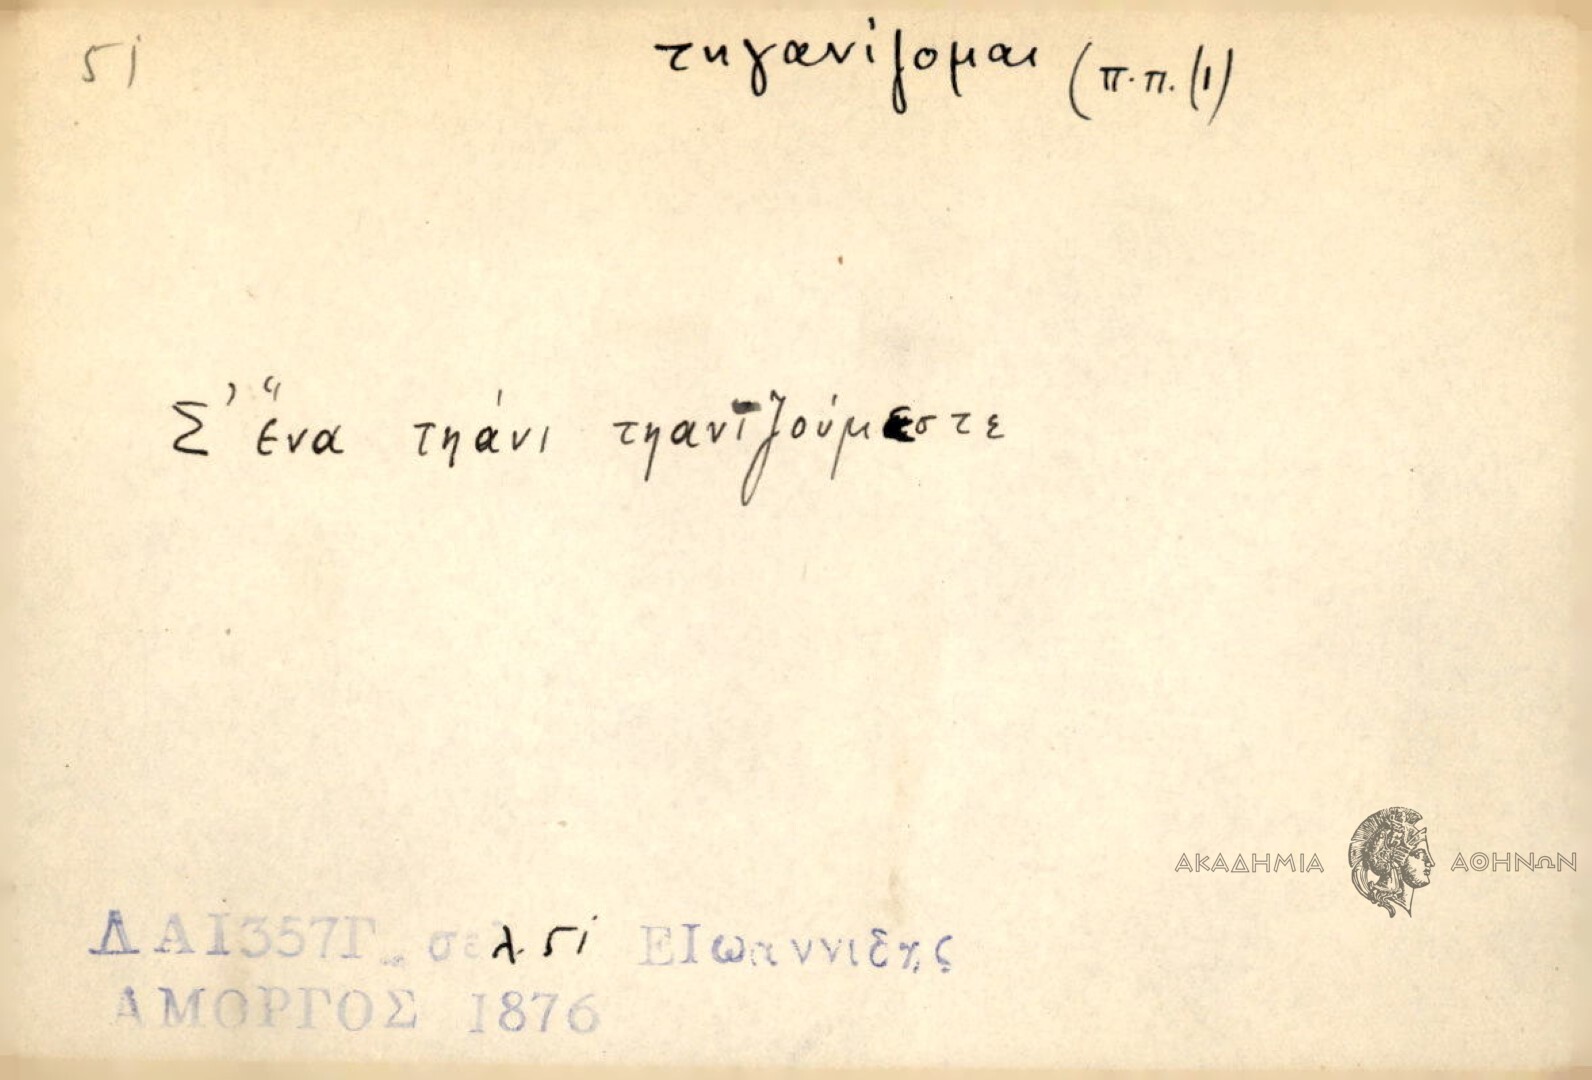 51 τηγανίζομαι (π.π. (1)
Σ' ἕνα τηάνι τηανιζούμεστε
ΑΚΑΔΗΜΙΑ ΑΘΗΝΩΝ
ΔΑΙ357Γ σελ. 51 ΕΙωαννιδης
ΑΜΟΡΓΟΣ 1876